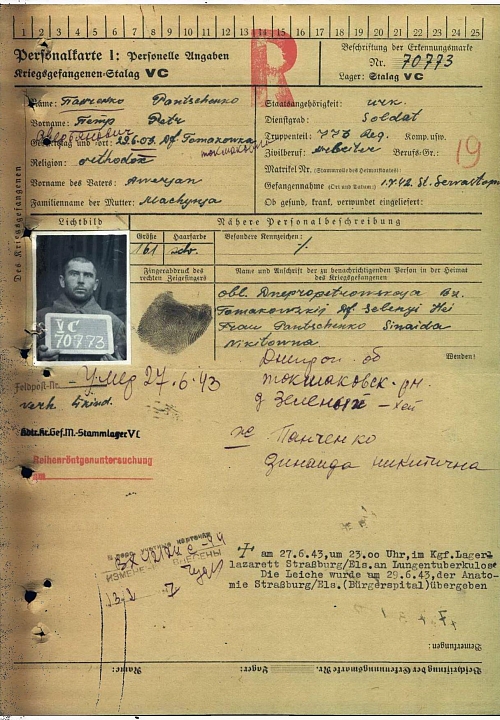 1 2 3 4 5 6 7 8 9 10 11 12 13 14 15 16 17 18 19 20 21 22 23 24 25
Personalkarte I: Personelle Angaben
Kriegsgefangenen-Stalag VC
R
Beschriftung der Erkennungsmarke
Nr. 70773
Lager: Stalag VC
Des Kriegsgefangenen
Name: Панченко Pantschenko
Vorname: Петр Petr
Аверьянович
Geburtstag und -ort: 29.6.03. Df. Tomakowka
Religion: orthodox
Vorname des Vaters: Awerjan
Familienname der Mutter:
Staatsangehörigkeit: ukr.
Dienstgrad: Soldat
Truppenteil: 778 Reg. Komp. usw.
Zivilberuf: Arbeiter Berufs-Gr.: 19
Matrikel Nr. (Stammrolle des Heimatstaates):
Gefangennahme (Ort und Datum): 1.7.42. St. Sewastopol
Ob gesund, krank, verwundet eingeliefert:
Lichtbild
Nähere Personalbeschreibung
Größe Haarfarbe Besondere Kennzeichen:
161
Fingerabdruck des rechten Zeigefingers
Name und Anschrift der zu benachrichtigenden Person in der Heimat
des Kriegsgefangenen
VC
70773
obl. Dnepropetrowskaja
Tomakowskij Df. Selenyi Hei
Frau Pantschenko Sinaida
Nikitowna
Wenden!
Feldpost-Nr. Умер 27.6.43
об
рн.
д Зеленый - Хей
ж Панченко
Зинаида Никитична
Kdtr.Kr.Gef.M-Stammlager VC
Reihenröntgenuntersuchung
am
ИЗМЕНЕНИЯ ВНЕСЕНЫ
+ am 27.6.43,um 23.oo Uhr,im Kgf.Lager-
lazarett Straßburg/Els.an Lungentuberkulose
Die Leiche wurde um 29.6.43,der Anato-
mie Straßburg/Els.(Bürgerspital)übergeben
Bemerkungen:
Beschriftung der Erkennungsmarke Nr. Lager: Name: